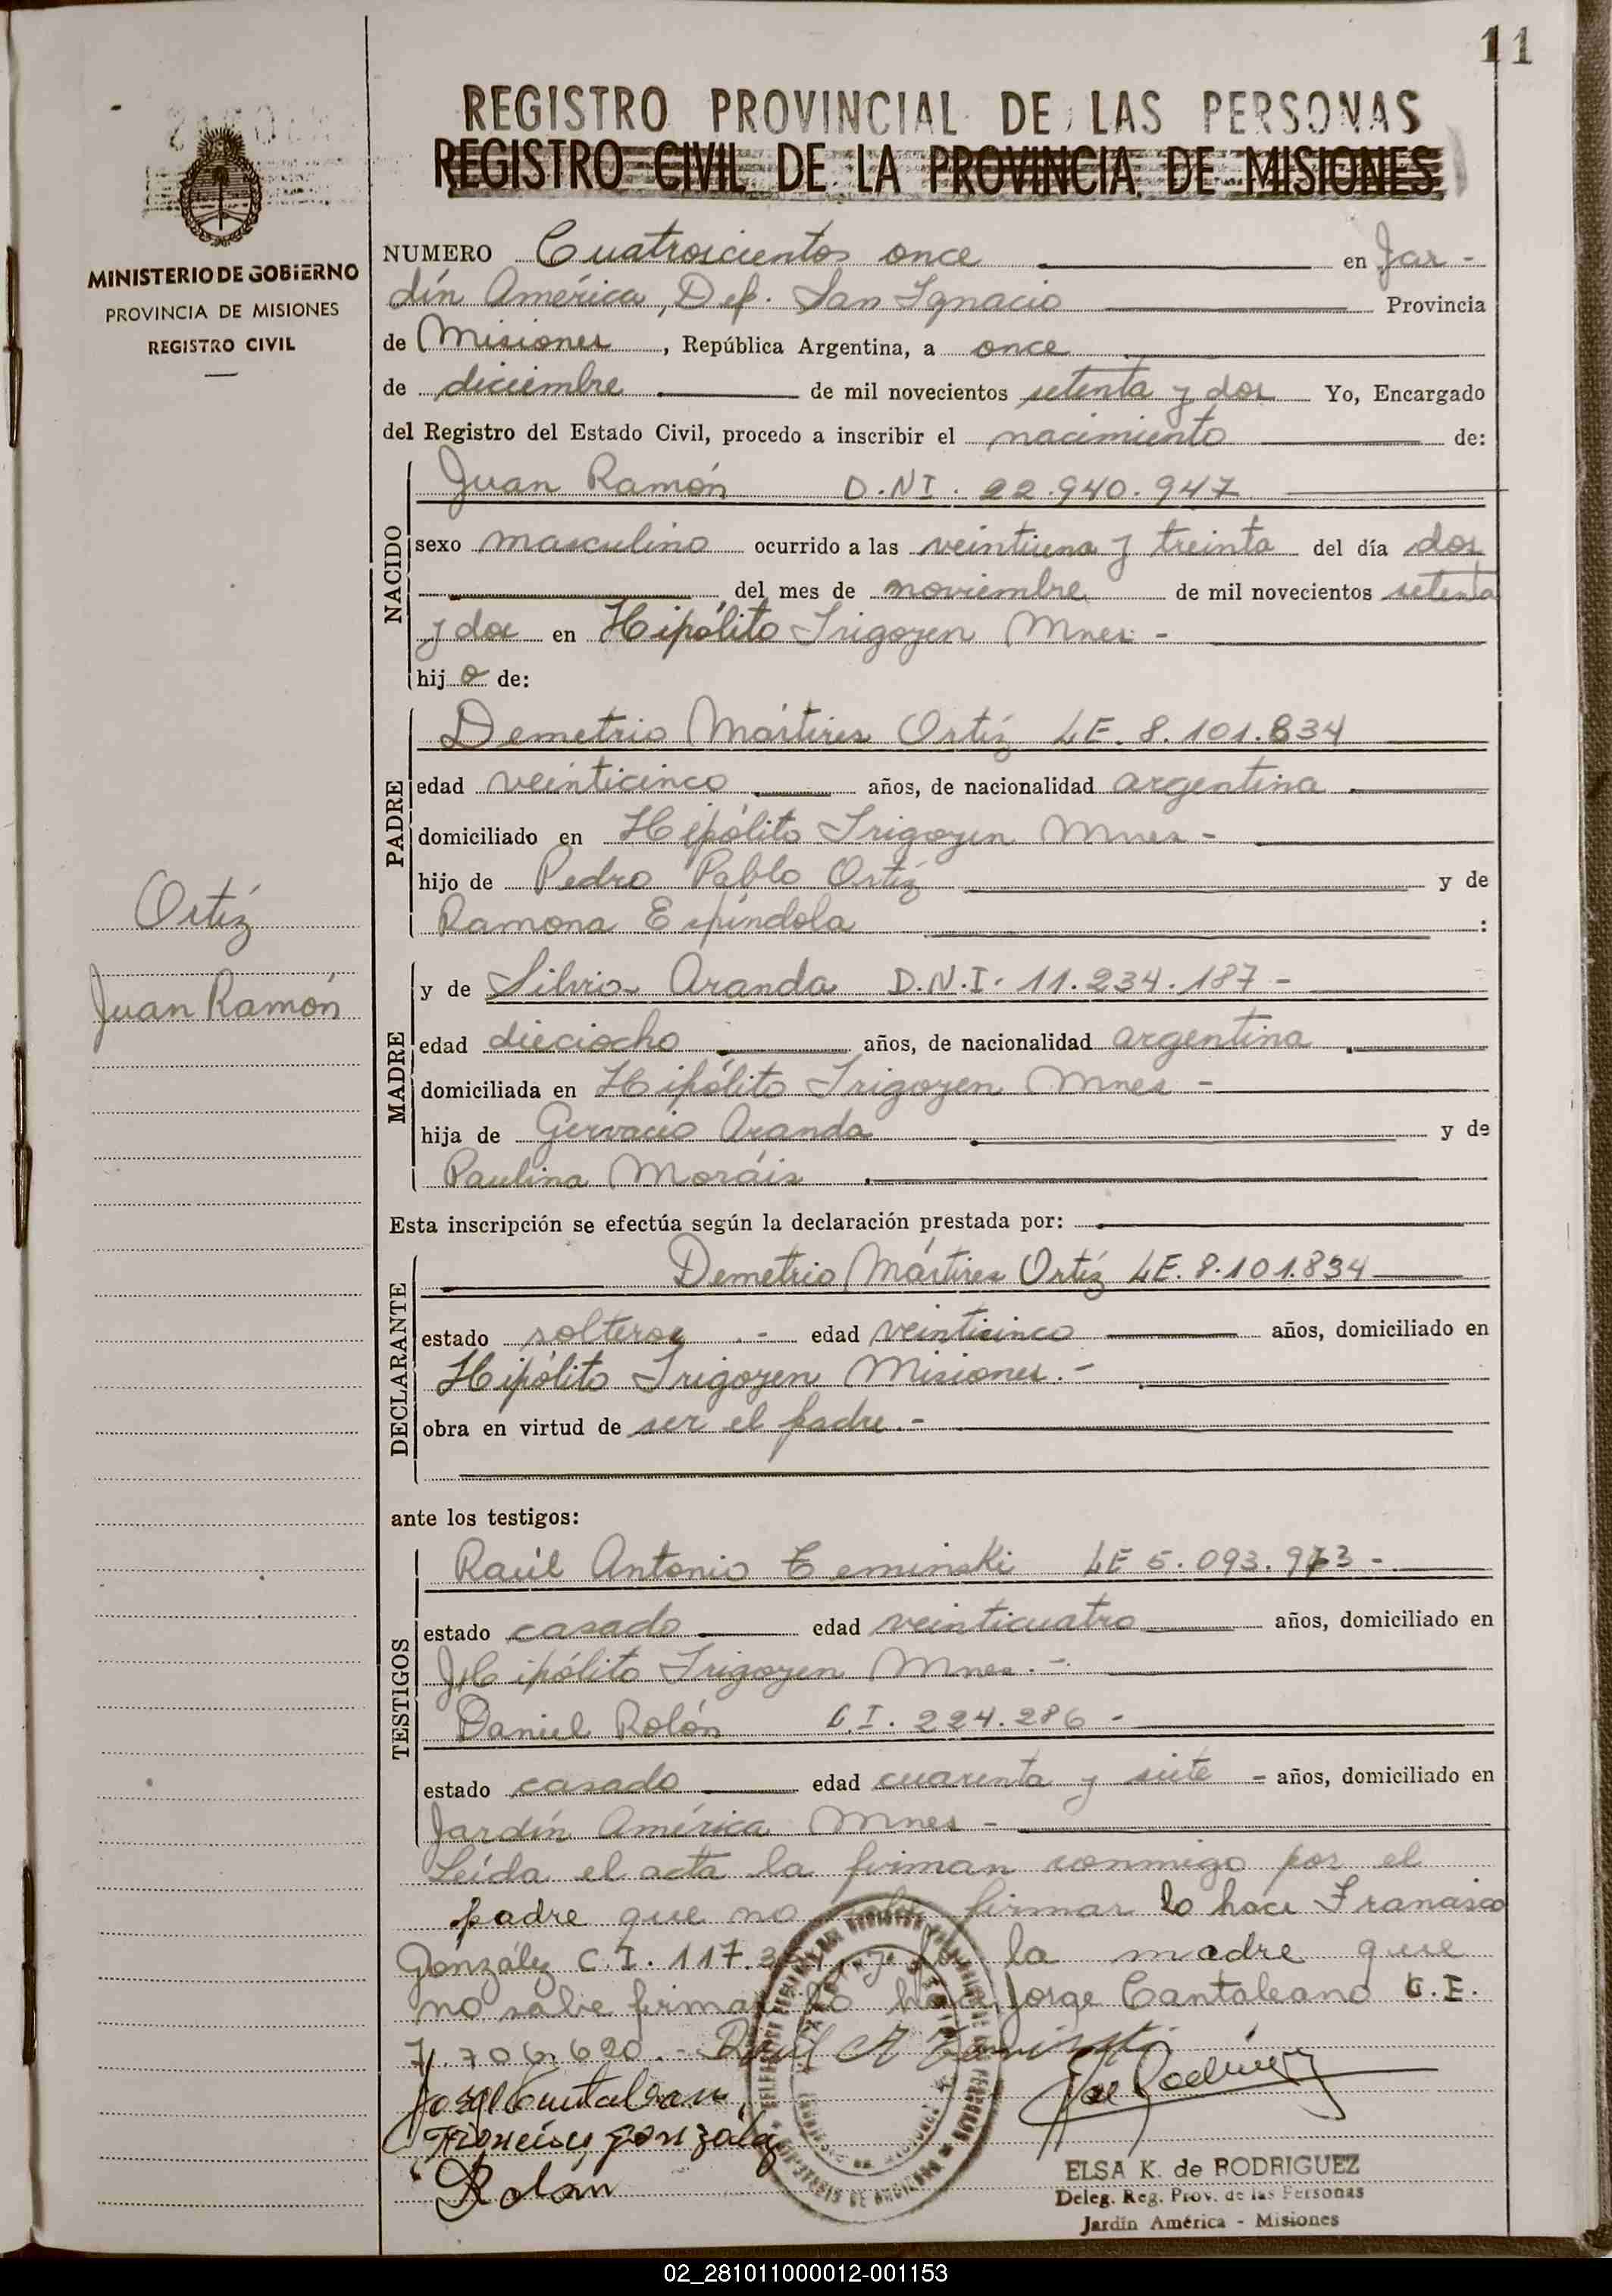 11
REGISTRO PROVINCIAL DE LAS PERSONAS
REGISTRO CIVIL DE LA PROVINCIA DE MISIONES
MINISTERIO DE GOBIERNO
PROVINCIA DE MISIONES
REGISTRO CIVIL
NUMERO Cuatroscientos once en Jar-
dín América, Dep. San Ignacio Provincia
de Misiones, República Argentina, a once
de diciembre de mil novecientos setenta y dos Yo, Encargado
del Registro del Estado Civil, procedo a inscribir el nacimiento de:
NACIDO
Juan Ramón D.N.I. 22.940.947
sexo masculino ocurrido a las veintiuna y treinta del día dos
del mes de noviembre de mil novecientos setenta
y dos en Hipólito Irigoyen Mnes-
hijo de:
PADRE
Demetrio Mártires Ortíz LE. 8.101.834
edad veinticinco años, de nacionalidad argentina
domiciliado en Hipólito Irigoyen Mnes-
hijo de Pedro Pablo Ortíz y de
Ramona Espíndola :
Ortíz
Juan Ramón
MADRE
y de Silvia Aranda D.N.I. 11.234.187-
edad dieciocho años, de nacionalidad argentina
domiciliada en Hipólito Irigoyen Mnes-
hija de Gervacio Aranda y de
Paulina Moráis
Esta inscripción se efectúa según la declaración prestada por:
DECLARANTE
Demetrio Mártires Ortíz LE. 8.101.834
estado soltero .- edad veinticinco años, domiciliado en
Hipólito Irigoyen Misiones.-
obra en virtud de ser el padre.-
ante los testigos:
TESTIGOS
Raúl Antonio Zeminski LE 5.093.973-
estado casado edad veinticuatro años, domiciliado en
Hipólito Irigoyen Mnes.-
Daniel Rolón C.I. 224.286-
estado casado edad cuarenta y siete - años, domiciliado en
Jardín América Mnes-
Leída el acta la firman conmigo por el
padre que no sabe firmar lo hace Francisco
González C.I. 117.3 y por la madre que
no sabe firmar lo hace Jorge Cantaleano C.I.
7.706.690.-
Francisco gonzalez
Rolón
ELSA K. de RODRIGUEZ
Deleg. Reg. Prov. de las Personas
Jardín América - Misiones
02_281011000012-001153